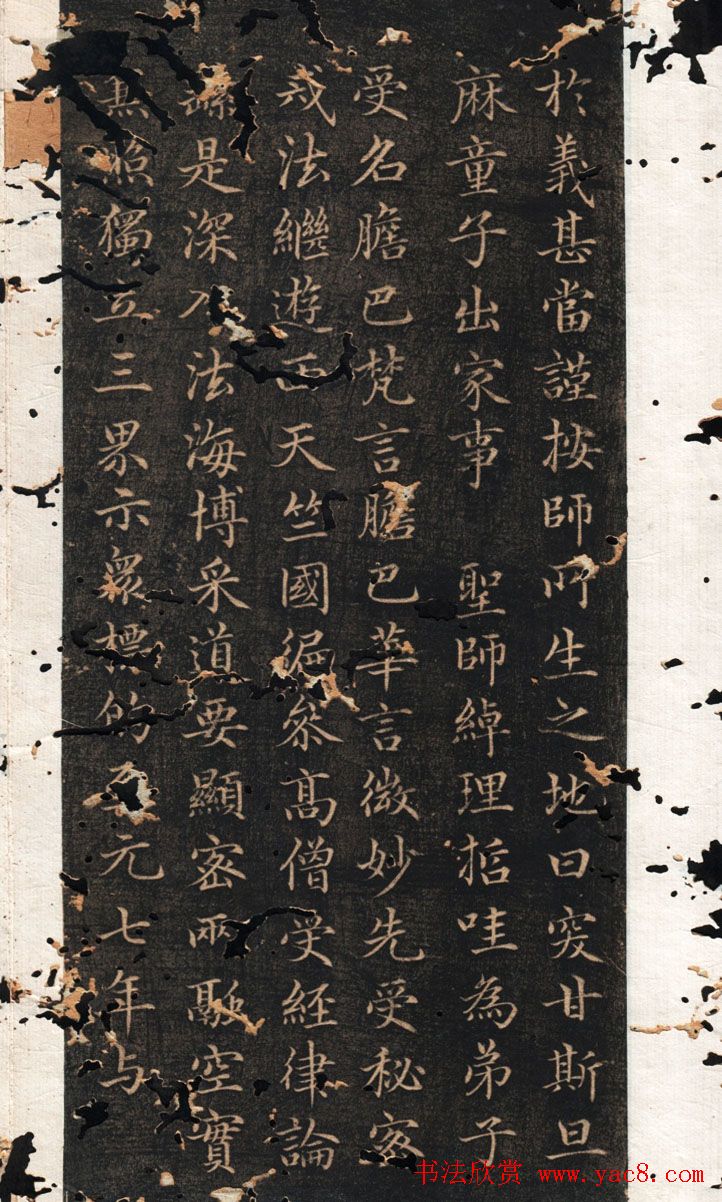 於義甚當謹按師所生之地曰突甘斯旦
麻童子出家事 聖師綽理哲哇為弟子
受名膽巴梵言膽巴華言微妙先受秘密
戒法繼遊西天竺國徧參高僧受経律論
繇是深入法海博采道要顯密兩融空實
兼照獨立三界示眾標的至元七年与
书法欣赏 www.yac8.com